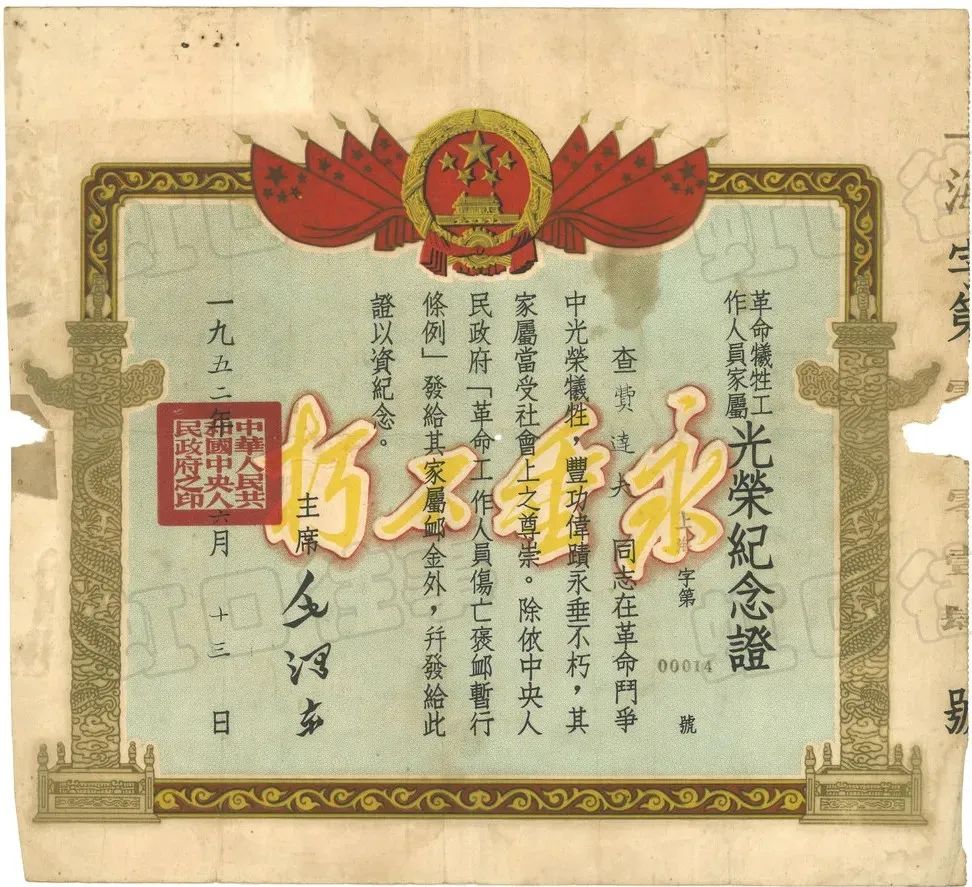 海字第 零壹肆 號
革命犧牲工
作人員家屬
光榮紀念證
上海字第 00014 號
查費達夫 同志在革命鬥爭
中光榮犧牲，豐功偉蹟永垂不朽，其
家屬當受社會上之尊崇。除依中央人
民政府「革命工作人員傷亡褒卹暫行
條例」發給其家屬卹金外，幷發給此
證以資紀念。
永垂不朽
主席 毛澤東
一九五二年六月十三日
中華人民共
和國中央人
民政府之印
虹口往事